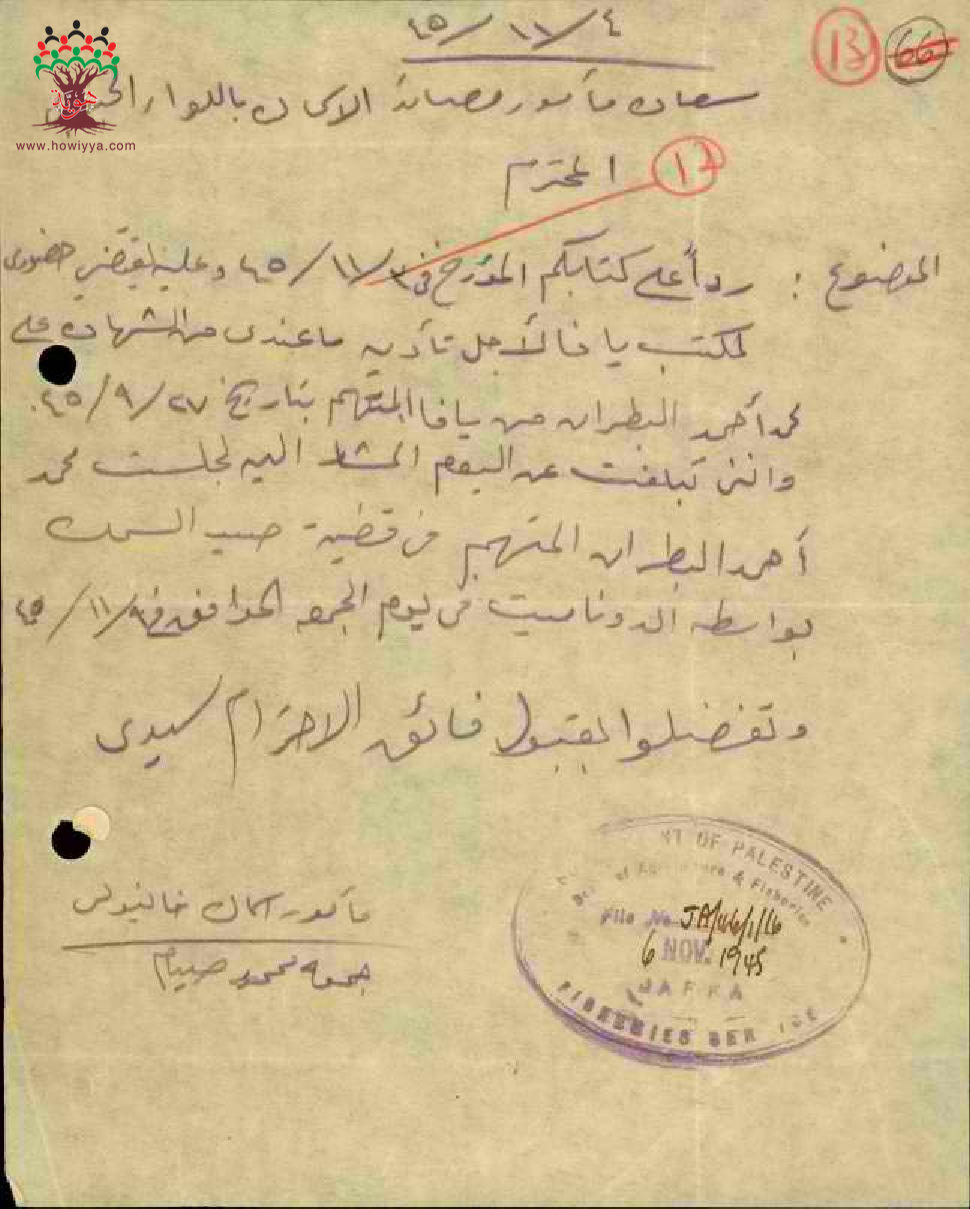 ٤/١١/٤٥
13
66
هوية
www.howiyya.com
سعادة مأمور مصائد الاسماك باللواء
12
المحترم
الموضوع : رداً على كتابكم المؤرخ في ٣/١١/٤٥ وعليه يقتضي حضوري
لمكتب يافا لأجل تأدية ما عندي من الشهادة على
محمد أحمد البطران من يافا المتهم بتاريخ ٢٧/٩/٤٥.
وانني تبلغت عن اليوم المشار اليه لجلست محمد
أحمد البطران المتهم في قضية صيد السمك
بواسطه الدوناميت في يوم الجمعه الموافق في ٩/١١/٤٥
وتفضلوا بقبول فائق الاحترام سيدي
مأمور اسماك خانيونس
جمعه محمد صيام
OF PALESTINE
& Fisheries
File No. JA/46/1/16
6 NOV. 1945
JAFFA
FISHERIES SER ICE